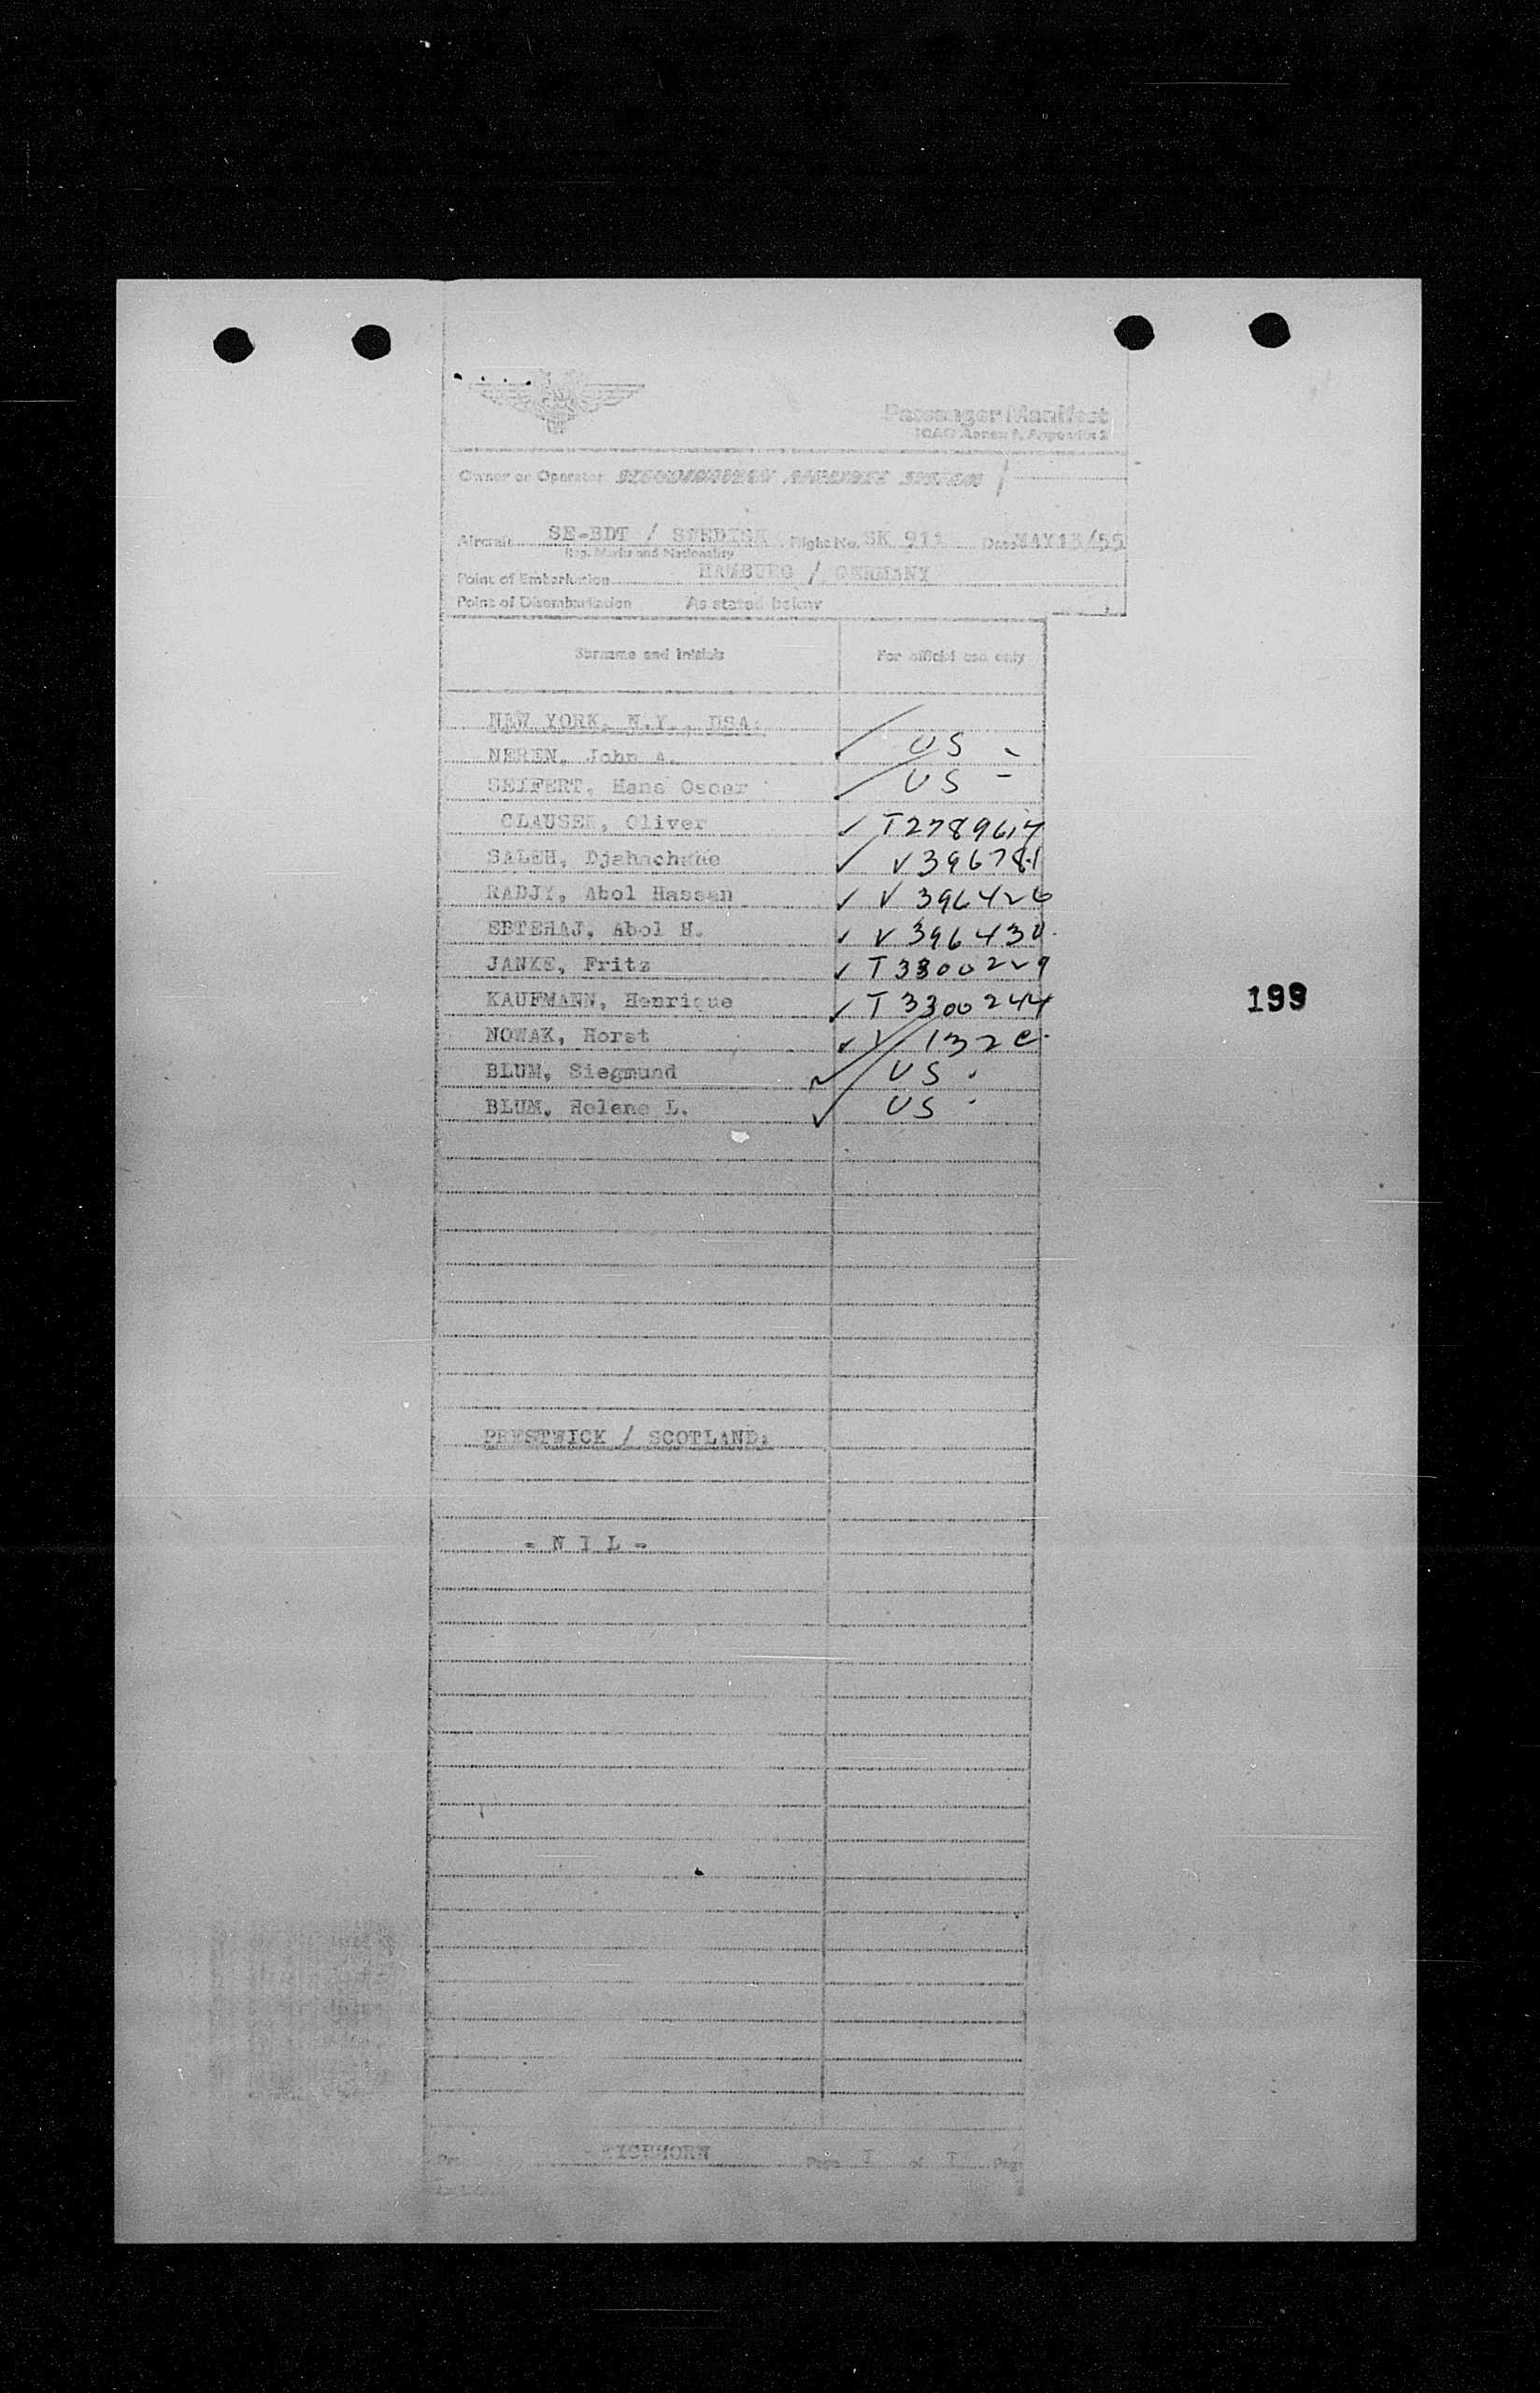 Passenger Manifest
ICAO Annex 9, Appendix 2
Owner or Operator SCANDINAVIAN AIRLINES SYSTEM
Aircraft SE-BDT / SWEDISH Flight No. SK 911 Date MAY13/55
Reg. Marks and Nationality
Point of Embarkation HAMBURG / GERMANY
Point of Disembarkation As stated below
Surname and Initials For official use only
NEW YORK, N.Y., USA:
NEREN, John A. US -
SEIFERT, Hans Oscar US -
CLAUSEN, Oliver ✓ T2789617
SALEH, Djahachahe ✓ V 396781
RADJY, Abol Hassan ✓ V 396426
EBTEHAJ, Abol H. ✓ V 396430
JANKE, Fritz ✓ T 3300229
KAUFMANN, Henrique ✓ T 3300244
199
NOWAK, Horst ✓ V 132
BLUM, Siegmund ✓ US
BLUM, Helene L. ✓ US
PRESTWICK / SCOTLAND:
- N I L -
EICHHORN Page 1 of 1 Page